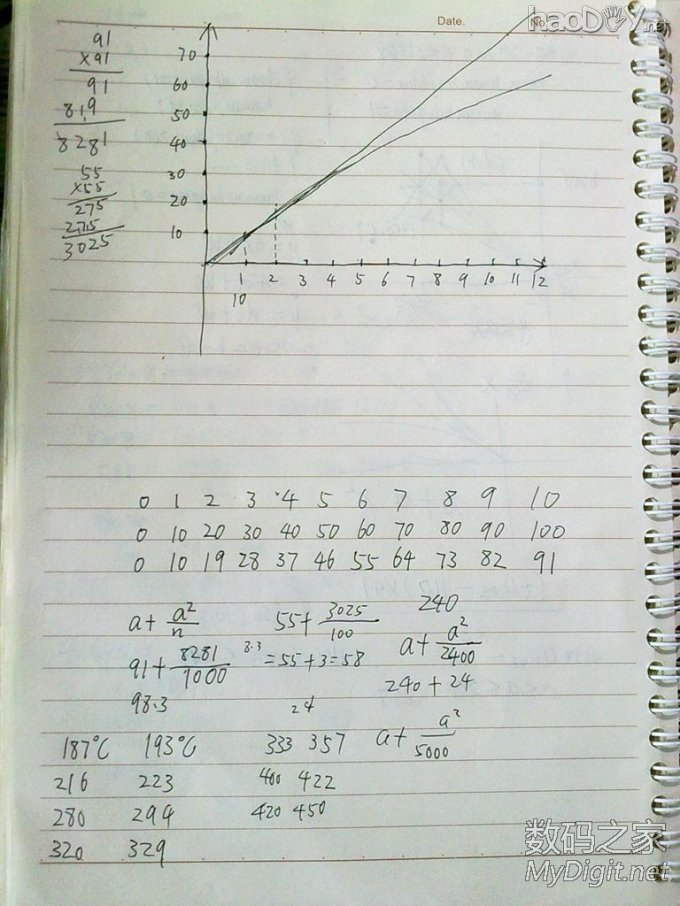 Date.
No.
haoDIY.net
91
x91
91
819
8281
55
x55
275
275
3025
70
60
50
40
30
20
10
1 2 3 4 5 6 7 8 9 10 11 12
10
0 1 2 3 4 5 6 7 8 9 10
0 10 20 30 40 50 60 70 80 90 100
0 10 19 28 37 46 55 64 73 82 91
a + a²/n
55 + 3025/100
240
91 + 8281/1000
8.3
= 55 + 3 = 58
a + a²/2400
98.3
24
240 + 24
187°C 193°C 333 357
a + a²/5000
216 223 400 422
280 294 420 450
320 329
数码之家
MyDigit.net